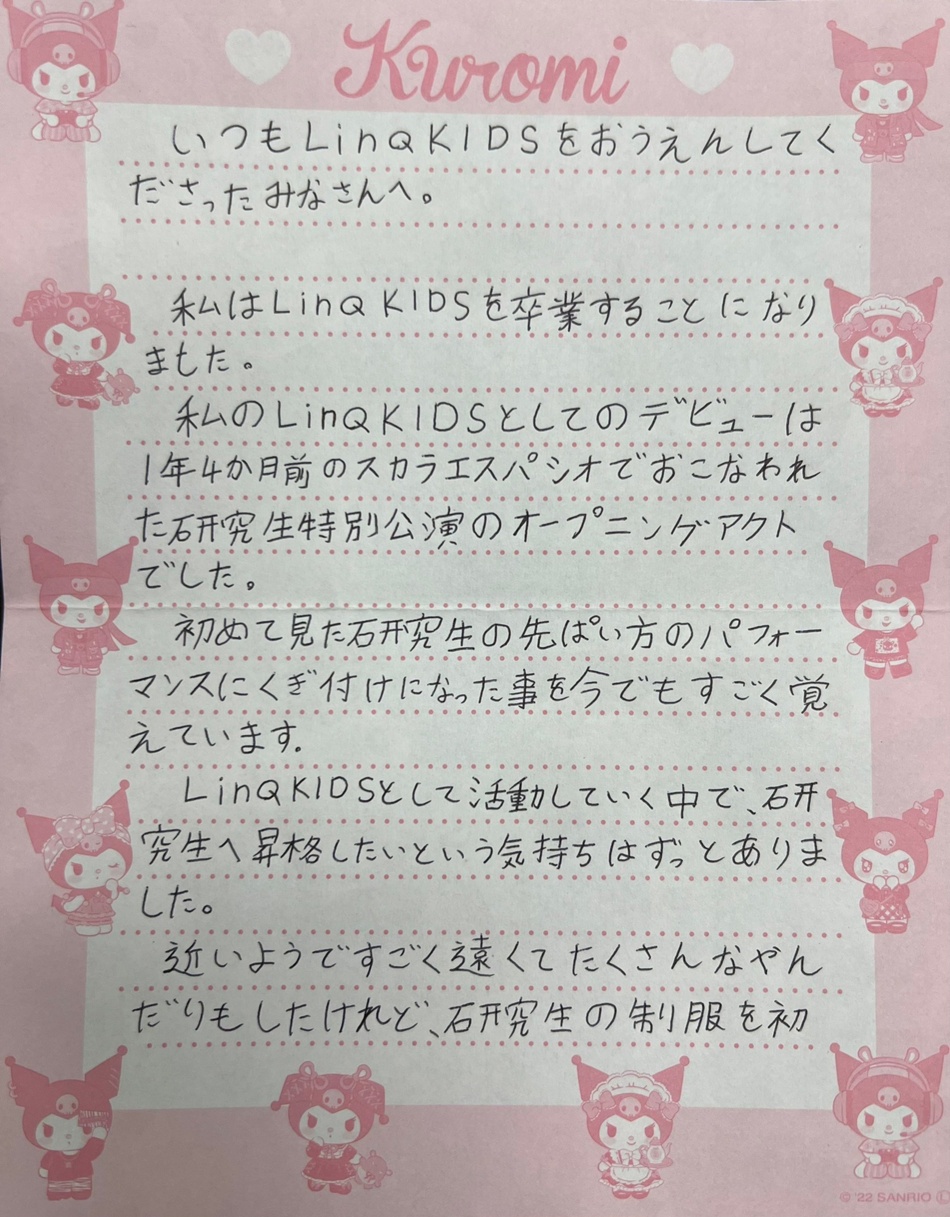 Kuromi
いつもLinQ KIDSをおうえんしてく
ださったみなさんへ。
私はLinQ KIDSを卒業することになり
ました。
私のLinQ KIDSとしてのデビューは
1年4か月前のスカラエスパシオでおこなわれ
た研究生特別公演のオープニングアクト
でした。
初めて見た研究生の先ぱい方のパフォー
マンスにくぎ付けになった事を今でもすごく覚
えています。
LinQ KIDSとして活動していく中で、研
究生へ昇格したいという気持ちはずっとありま
した。
近いようですごく遠くてたくさんなやん
だりもしたけれど、研究生の制服を初
© '22 SANRIO Ⓛ